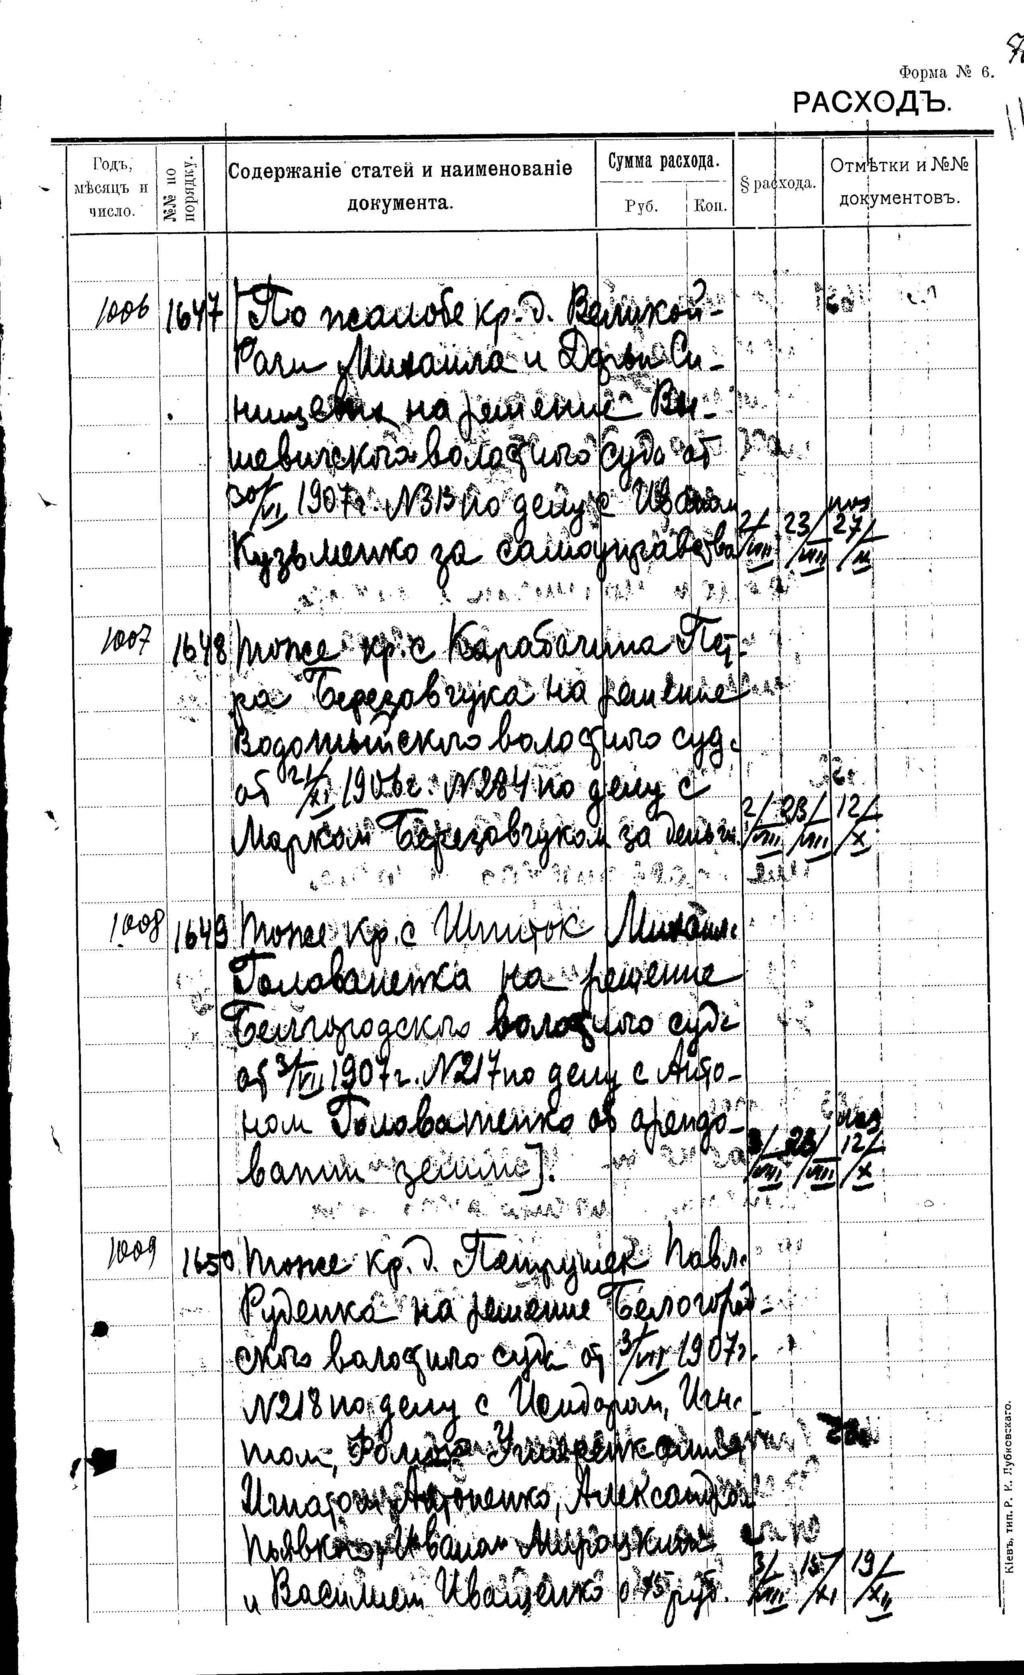 Форма № 6.
РАСХОДЪ.
Годъ, мѣсяцъ и число.
№№ по порядку.
Содержаніе статей и наименованіе документа.
Сумма расхода.
Руб. Коп.
§ расхода.
Отмѣтки и №№ документовъ.
1006 1647 По жалобе кр. д. Великой
Рачи Михаила и Дарьи Си-
нищевых на решение Вы-
шевичского волостного суда от
30/VI 1907 г. N313 по делу с Иваном
Кузьменко за самоуправства 2/VIII 23/VIII 27/
1007 1648 тоже кр. с Карабачина Пет-
ра Березовчука на решение
Водотыйского волостного суд.
от 21/XI 1906 г. N284 по делу с
Марком Березовчуком за деньги. 2/VIII 23/VIII 12/X
1008 1649 тоже кр. с Шпиток Михаил.
на решение
Белгородского волостного суда
от 3/VII 1907 г. N217 по делу с Анто-
ном Головатенко об арендо-
вании земли]. 3/VIII 23/VIII 12/X
1009 1650 тоже кр. д. Петрушек Павл.
Руденка на решение Белогород-
ского волостного суда от 3/VII 1907 г.
N218 по делу с Исидором, Игн.
том,
Игнатом Антоненко, Александром
Иваном Мироцким
и Василием Иващенко о 15 руб. 3/VIII 15/XI 19/XII
Кіевъ, тип. Р. К. Лубковскаго.